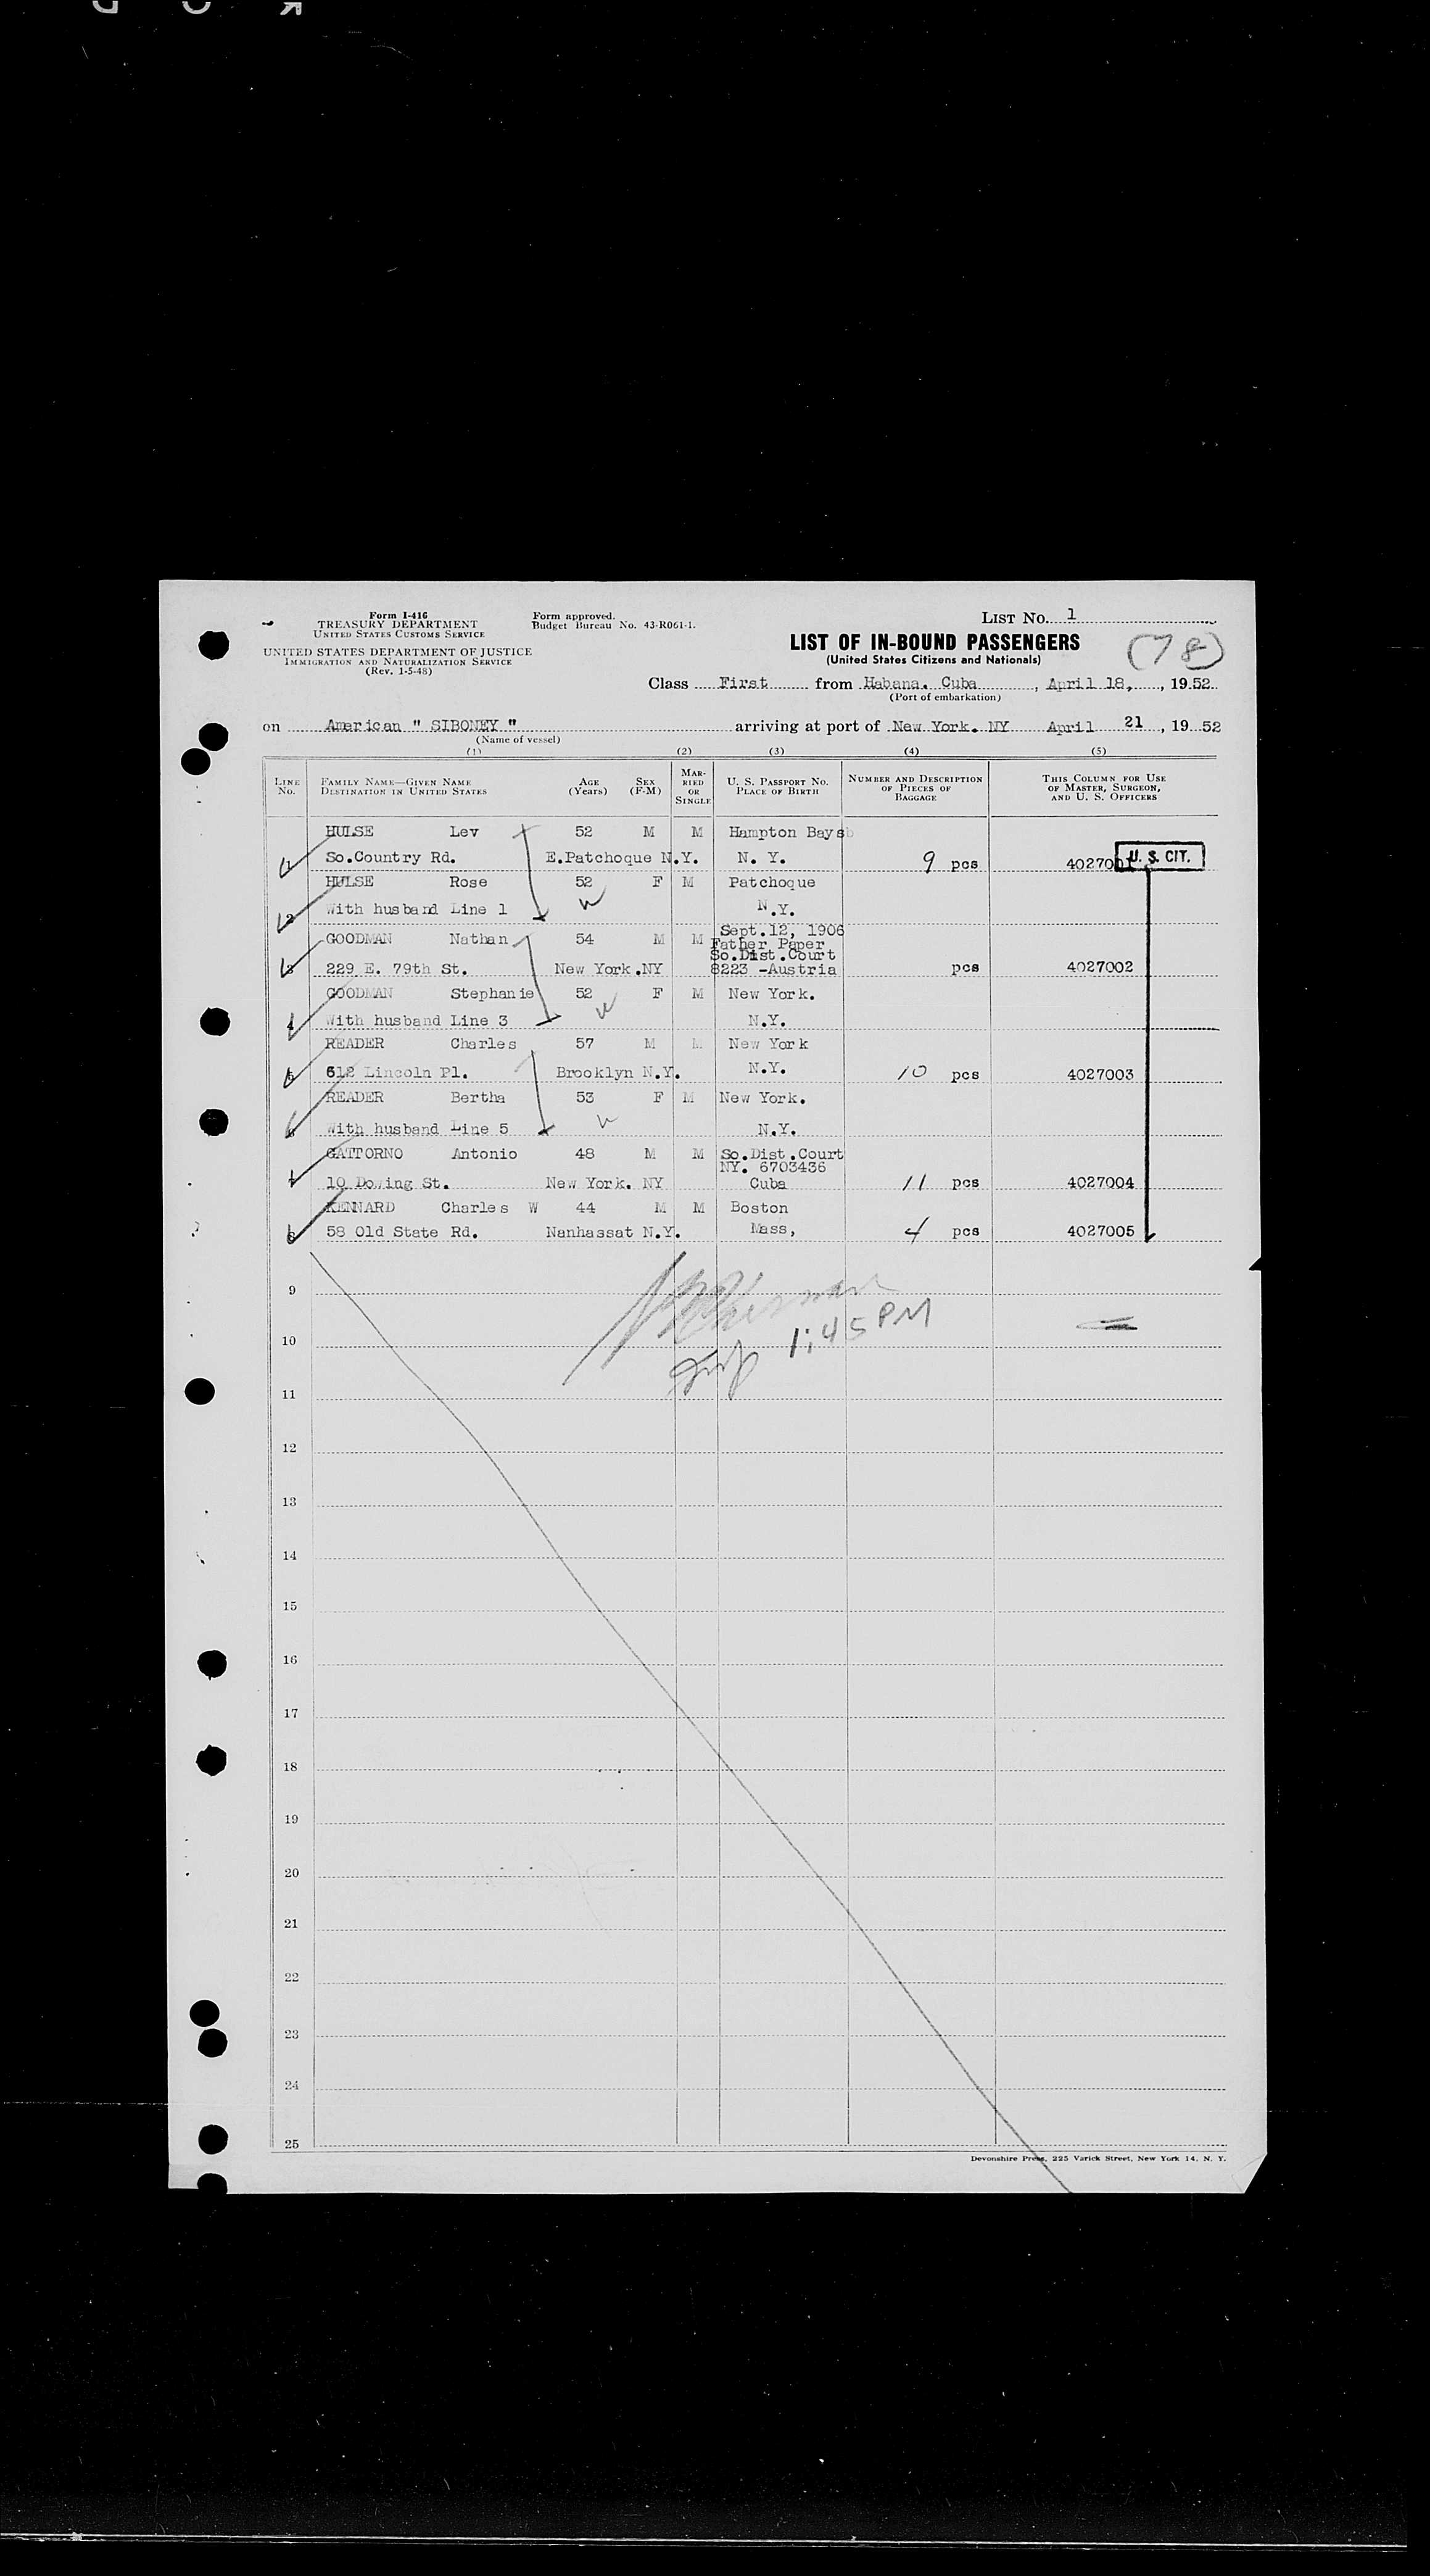 Form I-416
TREASURY DEPARTMENT
UNITED STATES CUSTOMS SERVICE
UNITED STATES DEPARTMENT OF JUSTICE
IMMIGRATION AND NATURALIZATION SERVICE
(Rev. 1-5-48)
Form approved.
Budget Bureau No. 43-R061-1.
LIST No. 1
LIST OF IN-BOUND PASSENGERS
(United States Citizens and Nationals)
(78)
Class First from Habana. Cuba, April 18, 1952
(Port of embarkation)
on American " SIBONEY " arriving at port of New York. NY April 21, 1952
(Name of vessel)
(1) (2) (3) (4) (5)
LINE No. FAMILY NAME—GIVEN NAME DESTINATION IN UNITED STATES AGE (Years) SEX (F-M) MARRIED OR SINGLE U. S. PASSPORT NO. PLACE OF BIRTH NUMBER AND DESCRIPTION OF PIECES OF BAGGAGE THIS COLUMN FOR USE OF MASTER, SURGEON, AND U. S. OFFICERS
HULSE Lev 52 M M Hampton Bays
1 So.Country Rd. E.Patchoque N.Y. N. Y. 9 pcs 4027001 U. S. CIT.
HULSE Rose 52 F M Patchoque
2 With husband Line 1 N.Y.
GOODMAN Nathan 54 M M Sept.12, 1906
Father Paper
So.Dist.Court
3 229 E. 79th St. New York.NY 8223 -Austria pcs 4027002
GOODMAN Stephanie 52 F M New York.
4 With husband Line 3 N.Y.
READER Charles 57 M M New York
5 612 Lincoln Pl. Brooklyn N.Y. N.Y. 10 pcs 4027003
READER Bertha 53 F M New York.
6 With husband Line 5 N.Y.
GATTORNO Antonio 48 M M So.Dist.Court
NY. 6703436
10 Dowing St. New York. NY Cuba 11 pcs 4027004
KENNARD Charles W 44 M M Boston
58 Old State Rd. Nanhassat N.Y. Mass, 4 pcs 4027005
9
1:45 PM
10
11
12
13
14
15
16
17
18
19
20
21
22
23
24
25
Devonshire Press, 225 Varick Street, New York 14, N. Y.